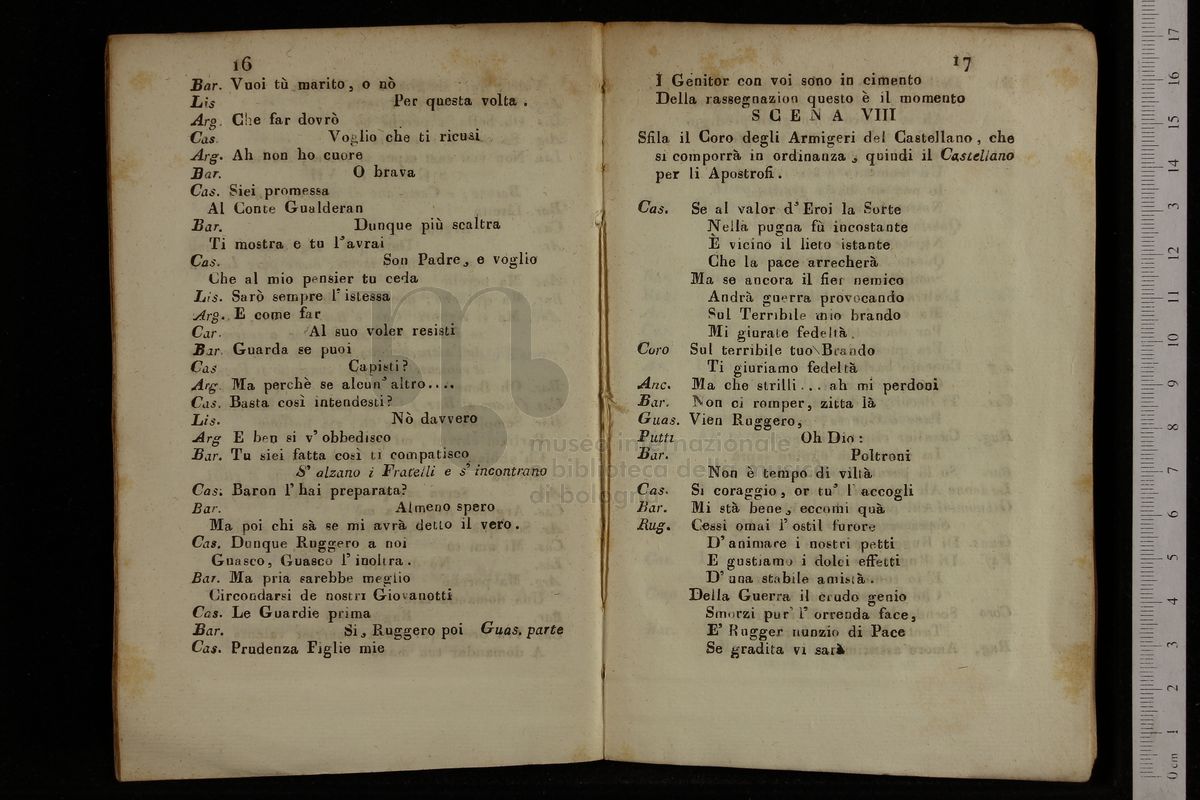 16
Bar. Vuoi tù marito, o nò
Lis Per questa volta .
Arg. Che far dovrò
Cas. Voglio che ti ricusi
Arg. Ah non ho cuore
Bar. O brava
Cas. Siei promessa
Al Conte Gualderan
Bar. Dunque più scaltra
Ti mostra e tu l'avrai
Cas. Son Padre, e voglio
Che al mio pensier tu ceda
Lis. Sarò sempre l'istessa
Arg. E come far
Car. Al suo voler resisti
Bar. Guarda se puoi
Cas Capisti?
Arg. Ma perchè se alcun' altro....
Cas. Basta così intendesti?
Lis. Nò davvero
Arg E ben si v' obbedisco
Bar. Tu siei fatta così ti compatisco
S' alzano i Fratelli e s' incontrano
Cas. Baron l' hai preparata?
Bar. Almeno spero
Ma poi chi sà se mi avrà detto il vero.
Cas. Dunque Ruggero a noi
Guasco, Guasco l' inoltra.
Bar. Ma pria sarebbe meglio
Circondarsi de nostri Giovanotti
Cas. Le Guardie prima
Bar. Si, Ruggero poi Guas. parte
Cas. Prudenza Figlie mie
17
I Genitor con voi sono in cimento
Della rassegnazion questo è il momento
SCENA VIII
Sfila il Coro degli Armigeri del Castellano, che
si comporrà in ordinanza, quindi il Castellano
per li Apostrofi.
Cas. Se al valor d' Eroi la Sorte
Nella pugna fù incostante
È vicino il lieto istante
Che la pace arrecherà
Ma se ancora il fier nemico
Andrà guerra provocando
Sul Terribile mio brando
Mi giurate fedeltà.
Coro Sul terribile tuo Brando
Ti giuriamo fedeltà
Anc. Ma che strilli... ah mi perdoni
Bar. Non ci romper, zitta là
Guas. Vien Ruggero,
Putti Oh Dio:
Bar. Poltroni
Non è tempo di viltà
Cas. Si coraggio, or tu' l' accogli
Bar. Mi stà bene, eccomi quà
Rug. Cessi omai l' ostil furore
D' animare i nostri petti
E gustiamo i dolci effetti
D' una stabile amistà.
Della Guerra il crudo genio
Smorzi pur' l' orrenda face,
E' Rugger nunzio di Pace
Se gradita vi sarà
museo internazionale
e biblioteca della musica
di bologna